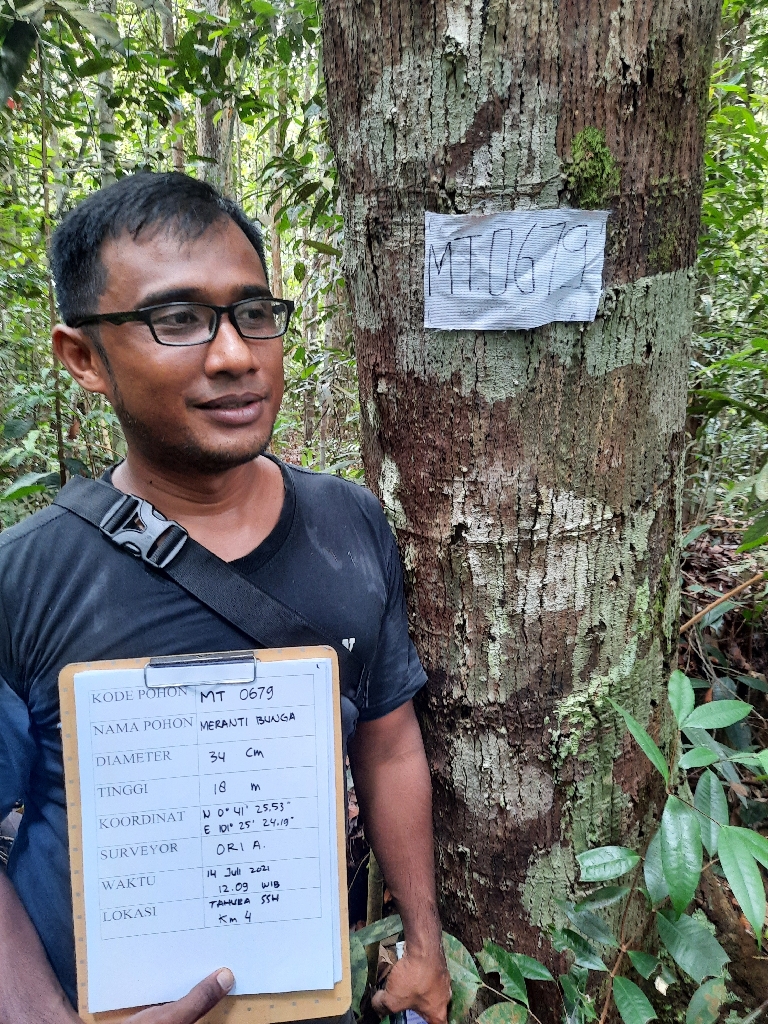 MT.0679
KODE POHON MT 0679
NAMA POHON MERANTI BUNGA
DIAMETER 34 cm
TINGGI 18 m
KOORDINAT N 0° 41' 25.53"
E 101° 25' 24.19"
SURVEYOR ORI A.
WAKTU 14 Juli 2021
12.09 WIB
LOKASI TAHURA SSH
Km 4